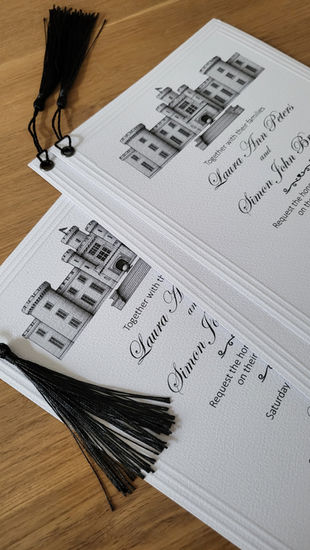 Together with their families
Laura Ann Peters
and
Simon John
Request the
on the
Together with
Laura
Simon
Request the
on their
Saturday